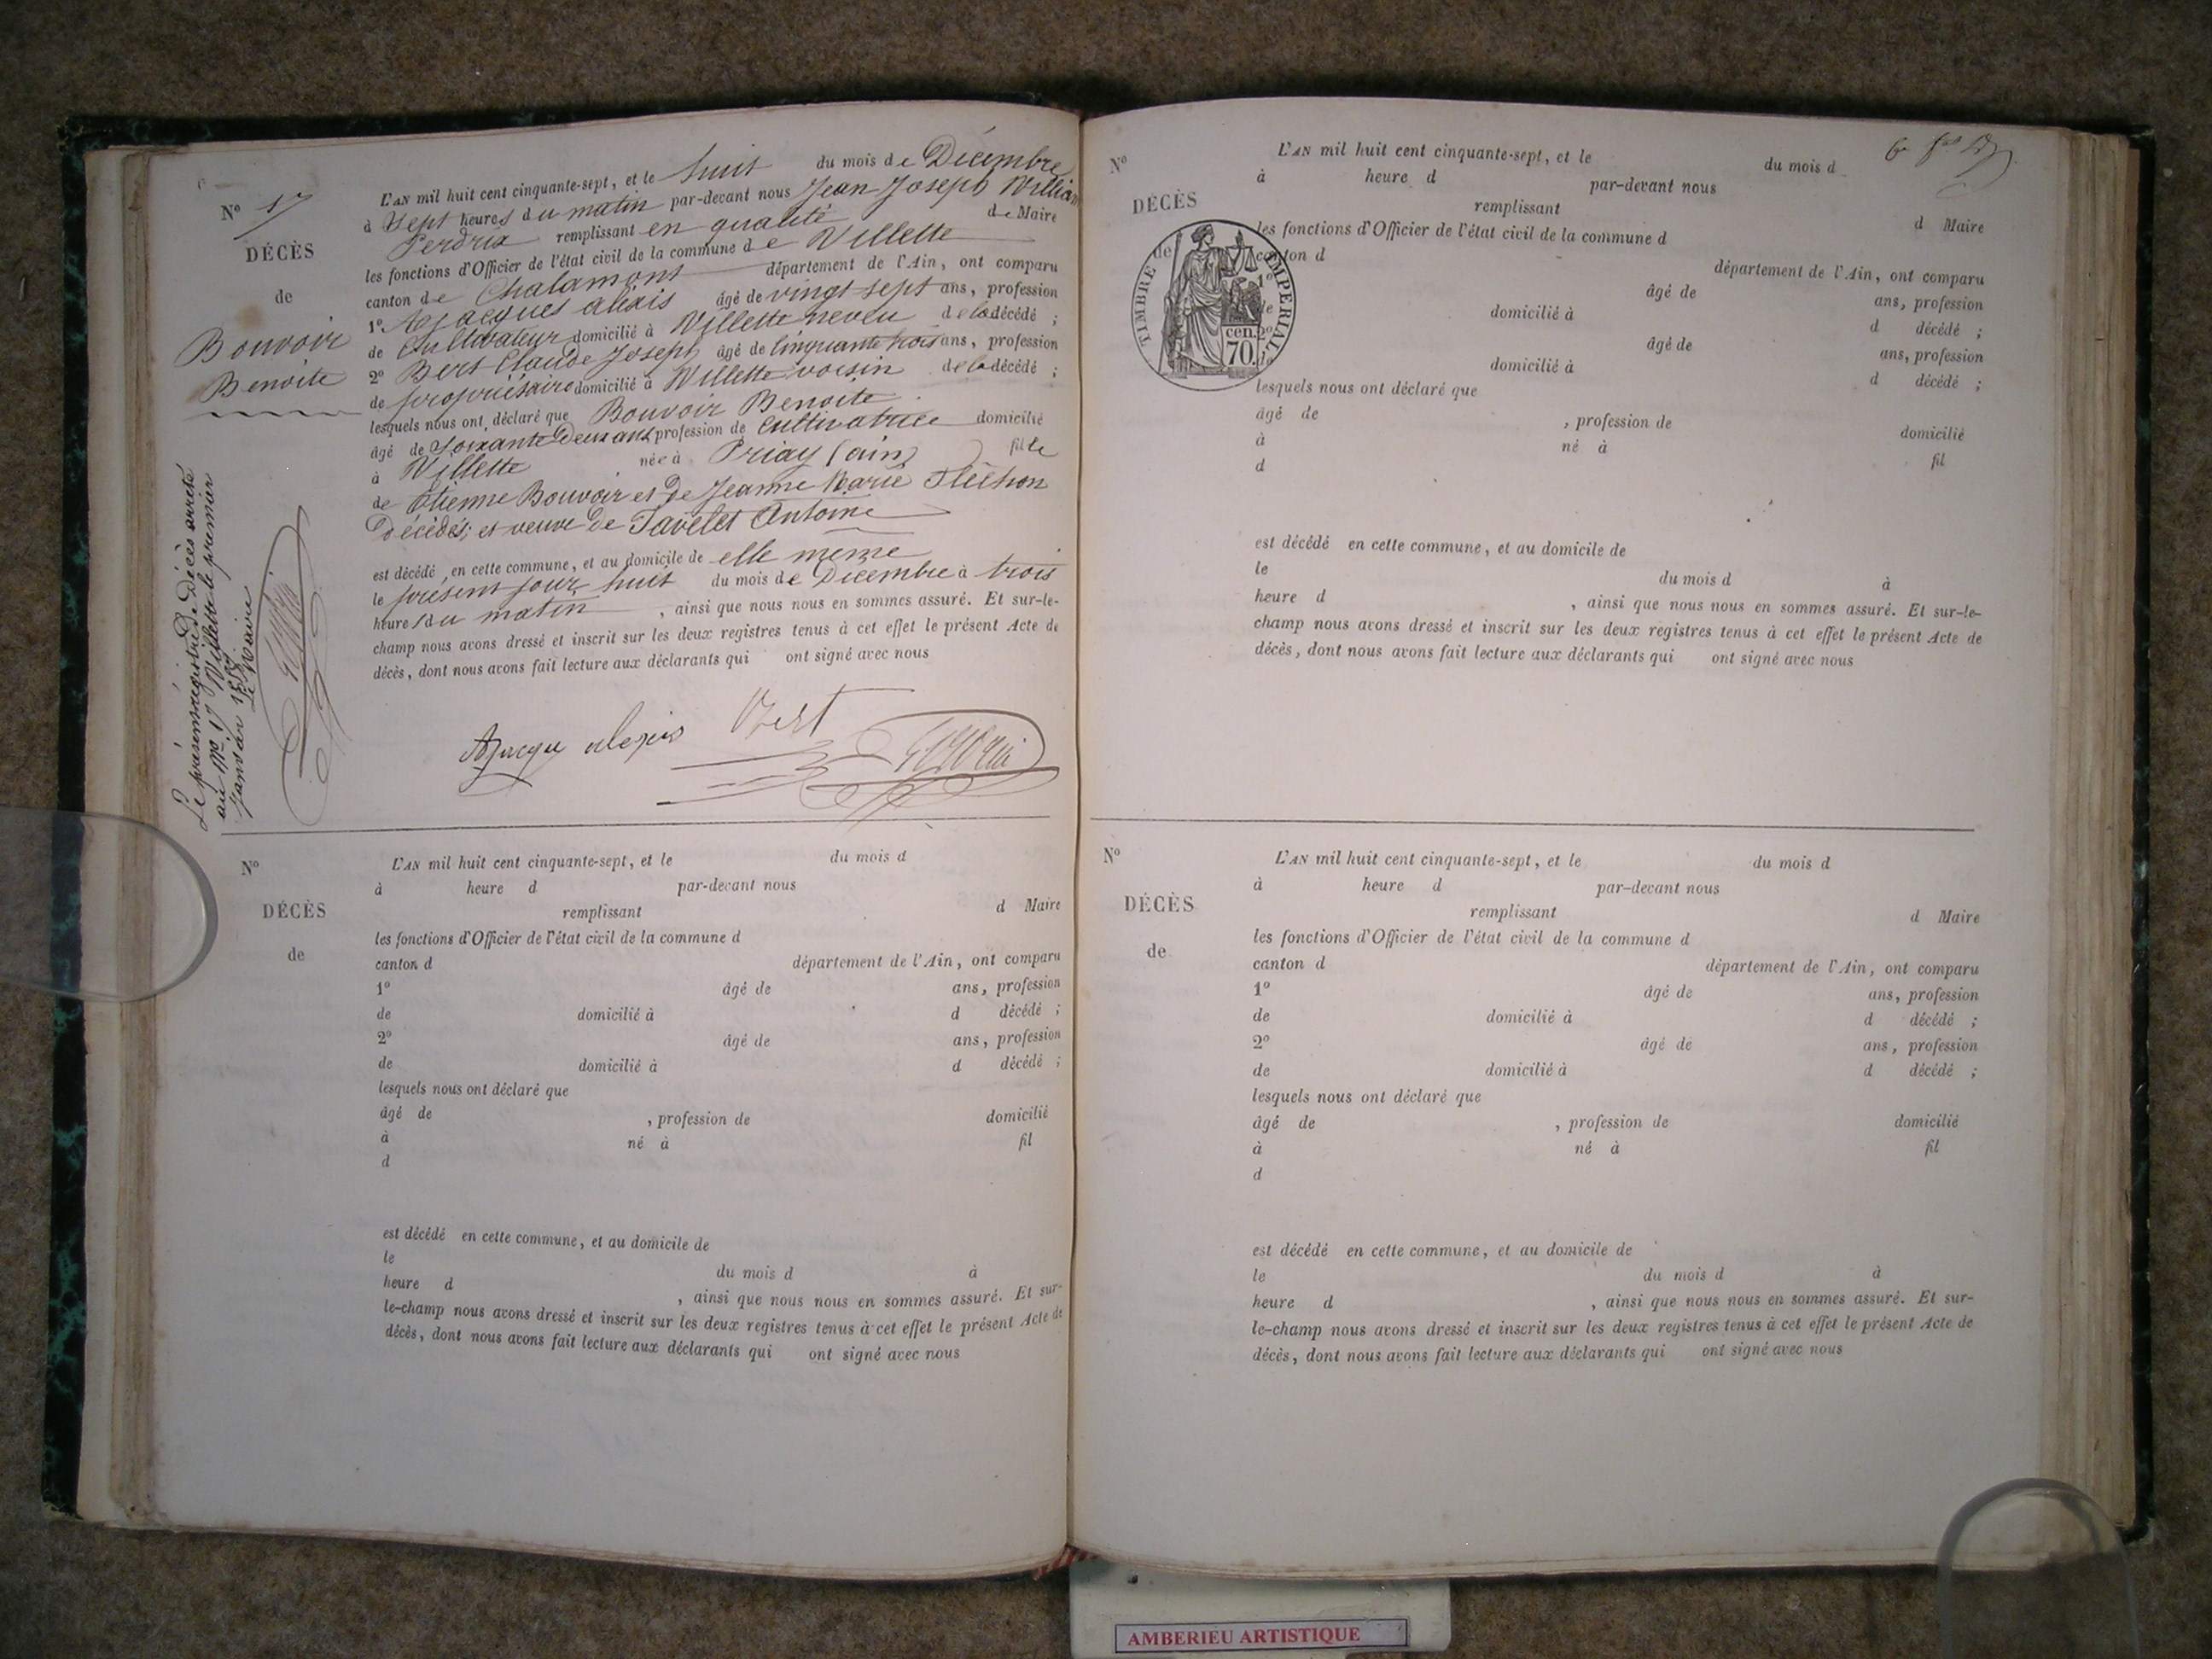 Nº 17
DÉCÈS
de
Bouvoir
Benoite
L'AN mil huit cent cinquante-sept, et le huit du mois de Décembre
à Sept heures du matin par-devant nous Jean Joseph William
Perdrix remplissant en qualité de Maire
les fonctions d'Officier de l'état civil de la commune de Villette
canton de Chalamont département de l'Ain, ont comparu
1º Ajacques alexis âgé de vingt sept ans, profession
de Cultivateur domicilié à Villette neveu de la décédé ;
2º Bert Claude Joseph âgé de Cinquante trois ans, profession
de propriétaire domicilié à Villette voisin de la décédé ;
lesquels nous ont déclaré que Bouvoir Benoite
âgé de Soixante Deux ans profession de Cultivatrice domicilié
à Villette née à Priay (ain) fille
de Etienne Bouvoir et de Jeanne Marie Fléchon
Décédés; et veuve de Tavelet Antoine
est décédé en cette commune, et au domicile de elle même
le présent jour huit du mois de Décembre à trois
heures du matin , ainsi que nous nous en sommes assuré. Et sur-le-
champ nous avons dressé et inscrit sur les deux registres tenus à cet effet le présent Acte de
décès, dont nous avons fait lecture aux déclarants qui ont signé avec nous
Ajacque alexis Bert
Le présent registre de Décès arrêté
au Nº 17 Villette le premier
janvier 1858
Le Maire
Nº
DÉCÈS
de
L'AN mil huit cent cinquante-sept, et le du mois d
à heure d par-devant nous
remplissant d Maire
les fonctions d'Officier de l'état civil de la commune d
canton d département de l'Ain, ont comparu
1º âgé de ans, profession
de domicilié à d décédé ;
2º âgé de ans, profession
de domicilié à d décédé ;
lesquels nous ont déclaré que
âgé de , profession de domicilié
à né à fil
d
est décédé en cette commune, et au domicile de
le du mois d à
heure d , ainsi que nous nous en sommes assuré. Et sur-
le-champ nous avons dressé et inscrit sur les deux registres tenus à cet effet le présent Acte de
décès, dont nous avons fait lecture aux déclarants qui ont signé avec nous
Nº
DÉCÈS
de
TIMBRE IMPERIAL
cen.
70.
L'AN mil huit cent cinquante-sept, et le du mois d
à heure d par-devant nous
remplissant d Maire
les fonctions d'Officier de l'état civil de la commune d
canton d département de l'Ain, ont comparu
1º âgé de ans, profession
de domicilié à d décédé ;
2º âgé de ans, profession
domicilié à d décédé ;
lesquels nous ont déclaré que
âgé de , profession de domicilié
à né à fil
d
est décédé en cette commune, et au domicile de
le du mois d à
heure d , ainsi que nous nous en sommes assuré. Et sur-le-
champ nous avons dressé et inscrit sur les deux registres tenus à cet effet le présent Acte de
décès, dont nous avons fait lecture aux déclarants qui ont signé avec nous
Nº
DÉCÈS
de
L'AN mil huit cent cinquante-sept, et le du mois d
à heure d par-devant nous
remplissant d Maire
les fonctions d'Officier de l'état civil de la commune d
canton d département de l'Ain, ont comparu
1º âgé de ans, profession
de domicilié à d décédé ;
2º âgé de ans, profession
de domicilié à d décédé ;
lesquels nous ont déclaré que
âgé de , profession de domicilié
à né à fil
d
est décédé en cette commune, et au domicile de
le du mois d à
heure d , ainsi que nous nous en sommes assuré. Et sur-
le-champ nous avons dressé et inscrit sur les deux registres tenus à cet effet le présent Acte de
décès, dont nous avons fait lecture aux déclarants qui ont signé avec nous
AMBERIEU ARTISTIQUE